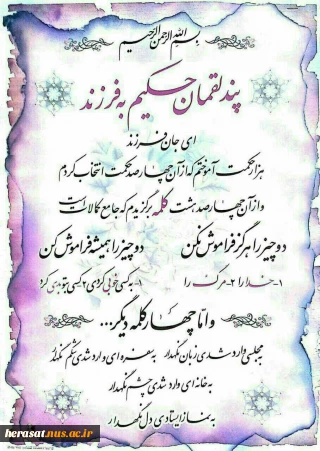 بسم الله الرحمن الرحیم
پند لقمان حکیم به فرزند
ای جان فرزند
هزار حکمت آموختم که از آن چهارصد حکمت انتخاب کردم
و از آن چهارصد هشت کلمه برگزیدم که جامع کمالات است
دو چیز را هرگز فراموش نکن
دو چیز را همیشه فراموش کن
۱-خدا را ۲-مرگ را
۱-به کسی خوبی کردی ۲-کسی به تو بدی کرد
و اما چهار کلمه دیگر...
به مجلسی وارد شدی زبان نگهدار به سفره ای وارد شدی شکم نگهدار
به خانه ای وارد شدی چشم نگهدار
به نماز ایستادی دل نگهدار
herasat.nus.ac.ir